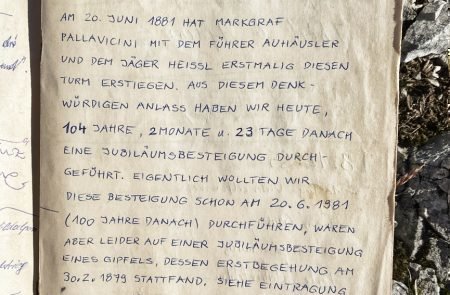 AM 20. JUNI 1881 HAT MARKGRAF
PALLAVICINI MIT DEM FÜHRER AUHÄUSLER
UND DEM JÄGER HEISSL ERSTMALIG DIESEN
TURM ERSTIEGEN. AUS DIESEM DENK-
WÜRDIGEN ANLASS HABEN WIR HEUTE,
104 JAHRE, 2 MONATE u. 23 TAGE DANACH
EINE JUBILÄUMSBESTEIGUNG DURCH-
GEFÜHRT. EIGENTLICH WOLLTEN WIR
DIESE BESTEIGUNG SCHON AM 20.6.1981
(100 JAHRE DANACH) DURCHFÜHREN, WAREN
ABER LEIDER AUF EINER JUBILÄUMSBESTEIGUNG
EINES GIPFELS, DESSEN ERSTBEGEHUNG AM
30.2.1879 STATTFAND. SIEHE EINTRAGUNG